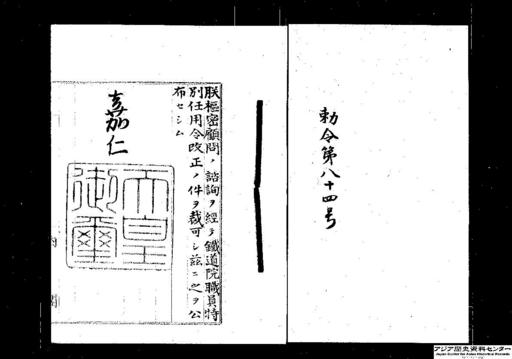 勅令第八十四号
朕樞密顧問ノ諮詢ヲ經テ鐵道院職員特
別任用令改正ノ件ヲ裁可シ茲ニ之ヲ公
布セシム
嘉仁
天皇
御璽
内閣
アジア歴史資料センター
Japan Center for Asian Historical Records